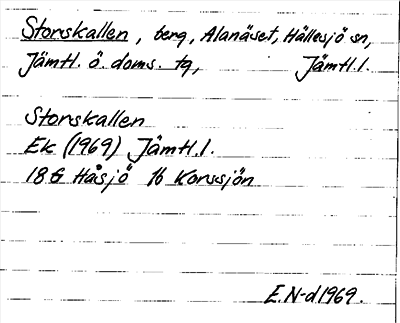 Storskallen, berg, Alanäset, Hällesjö sn,
Jämtl. ö. doms. tg, Jämtl. l.
Storskallen
Ek (1969) Jämtl. l.
18G Håsjö 1b Korssjön
E.N-d 1969.